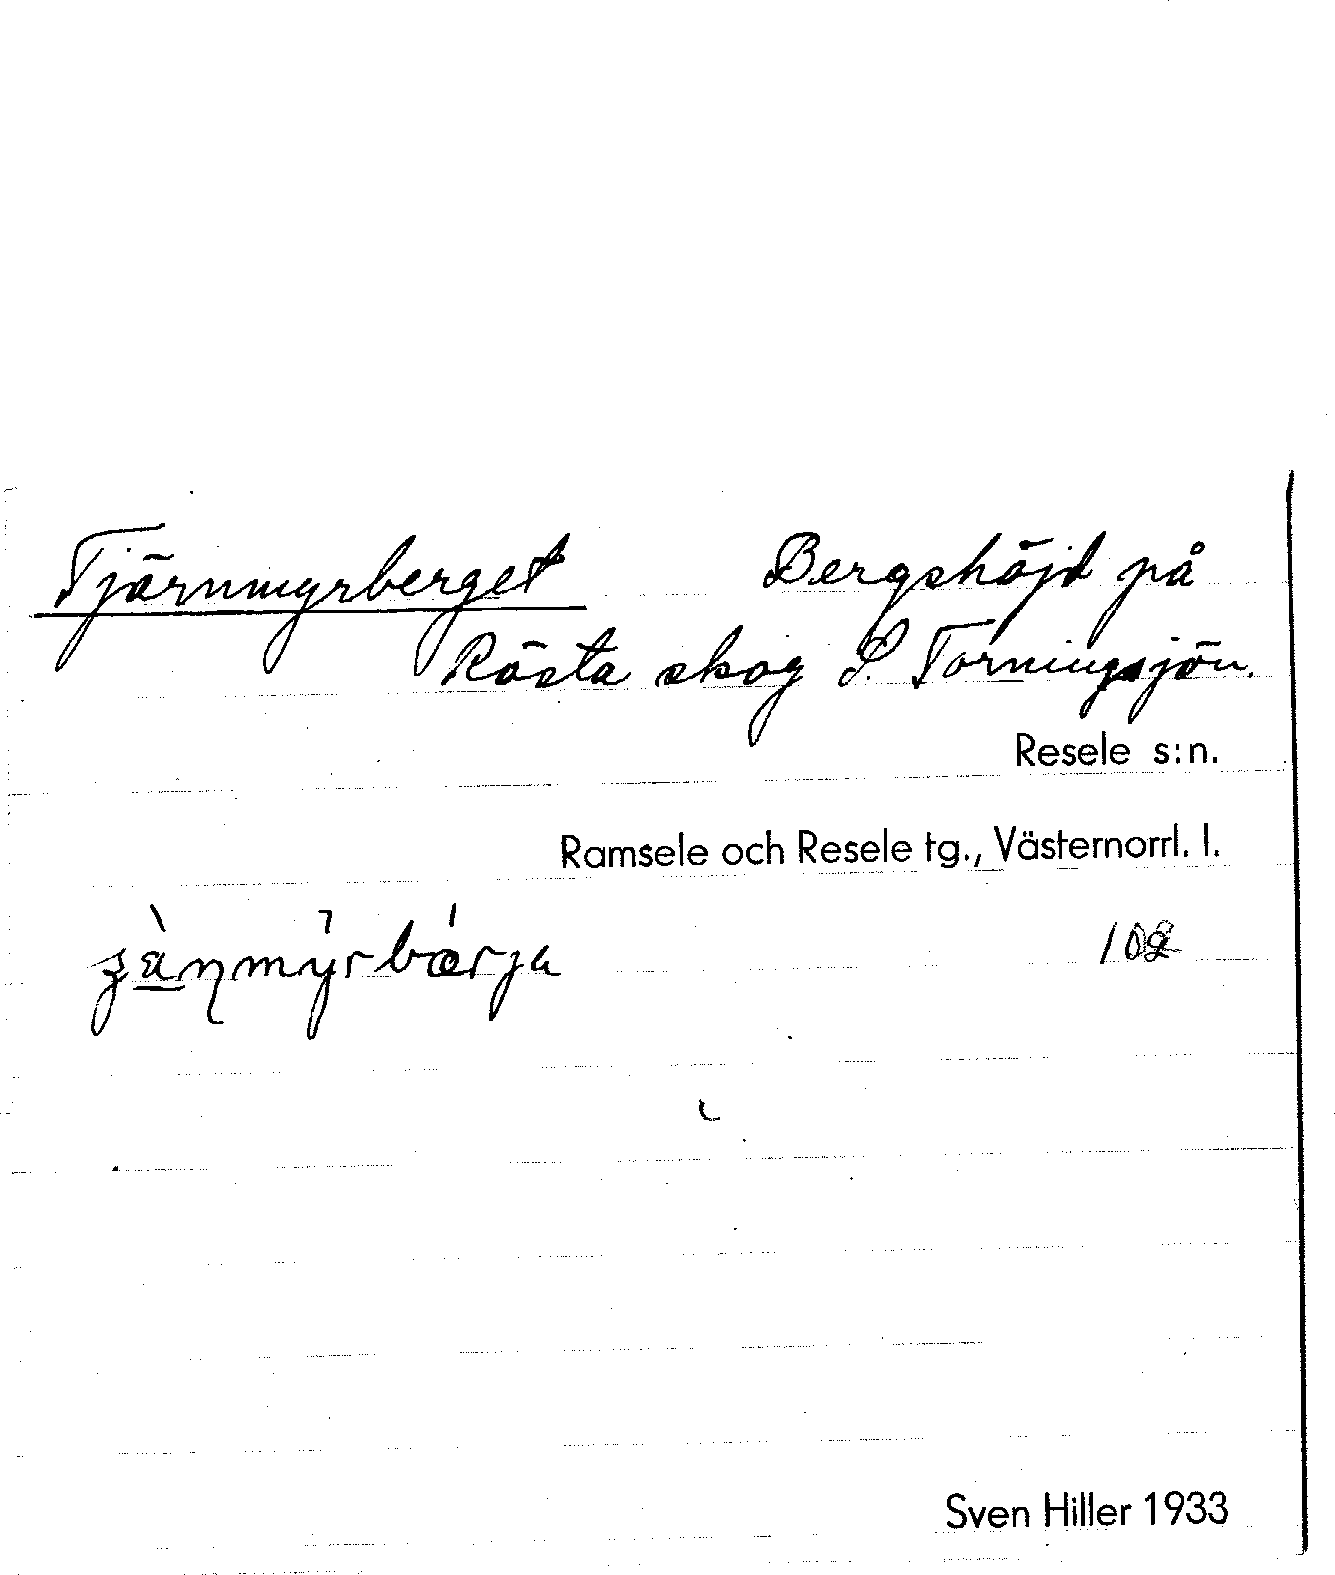 Tjärnmyrberget Bergshöjd på
Rösta skog S. Torningsjön.
Resele s:n.
Ramsele och Resele tg., Västernorrl. l.
Sven Hiller 1933